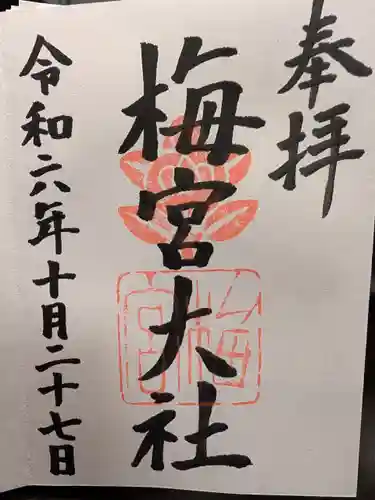 奉拝
梅宮大社
梅宮
令和六年十月二十七日